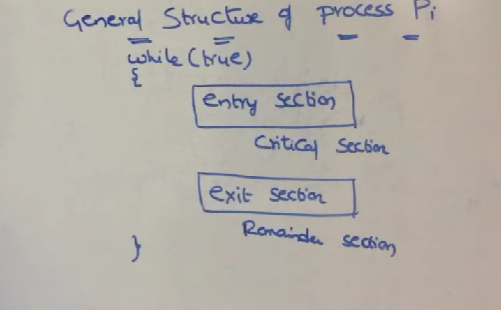 General Structure of process Pi
while (true)
{
entry section
Critical Section
exit section
Remainder section
}